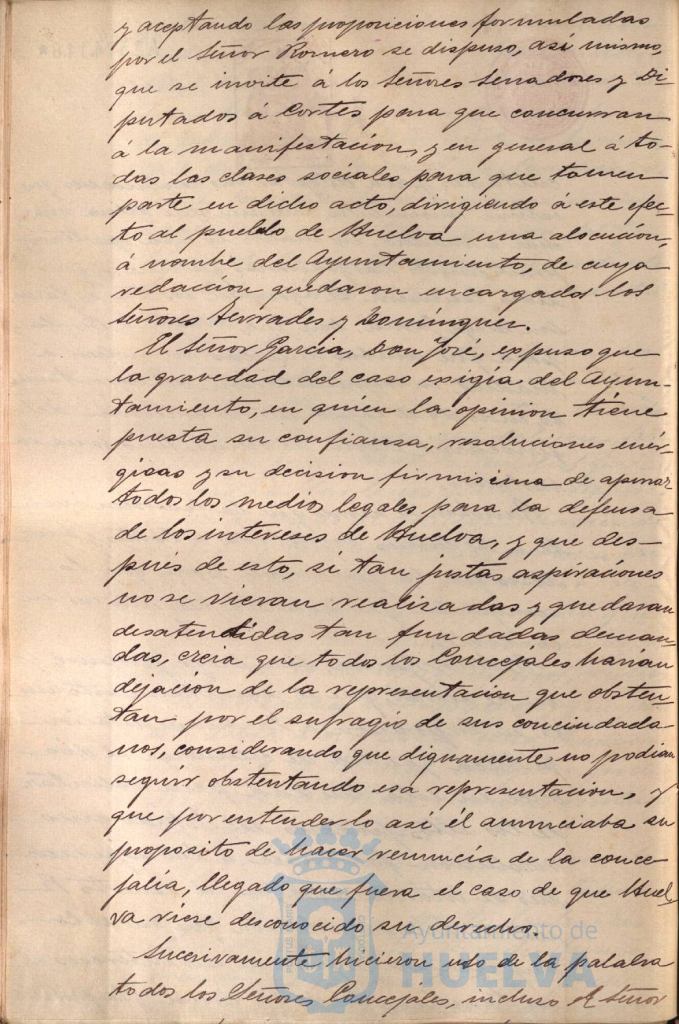 y aceptando las proposiciones formuladas
por el Señor Romero se dispuso, así mismo,
que se invite á los Señores Senadores y Di-
putados á Cortes para que concurran
á la manifestación, y en general á to-
das las clases sociales para que tomen
parte en dicho acto, dirigiendo á este efec-
to al pueblo de Huelva una alocución,
á nombre del Ayuntamiento, de cuya
redacción quedaron encargados los
Señores Terrades y Domínguez.
El Señor García, Don José, expuso que
la gravedad del caso exigía del Ayun-
tamiento, en quien la opinion tiene
puesta su confianza, resoluciones enér-
gicas y su decision firmisima de apurar
todos los medios legales para la defensa
de los intereses de Huelva, y que des-
pués de esto, si tan justas aspiraciones
no se vieran realizadas y quedaran
desatendidas tan fundadas deman-
das, creia que todos los Concejales harian
dejación de la representación que obsten-
tan por el sufragio de sus conciudada-
nos, considerando que dignamente no podian
seguir obstentando esa representacion, y
que por entenderlo así él anunciaba su
proposito de hacer renuncia de la conce-
jalia, llegado que fuera el caso de que Huel-
va viese desconocido su derecho.
Sucesivamente hicieron uso de la palabra
todos los Señores Concejales, incluso el Señor
Ayuntamiento de
HUELVA